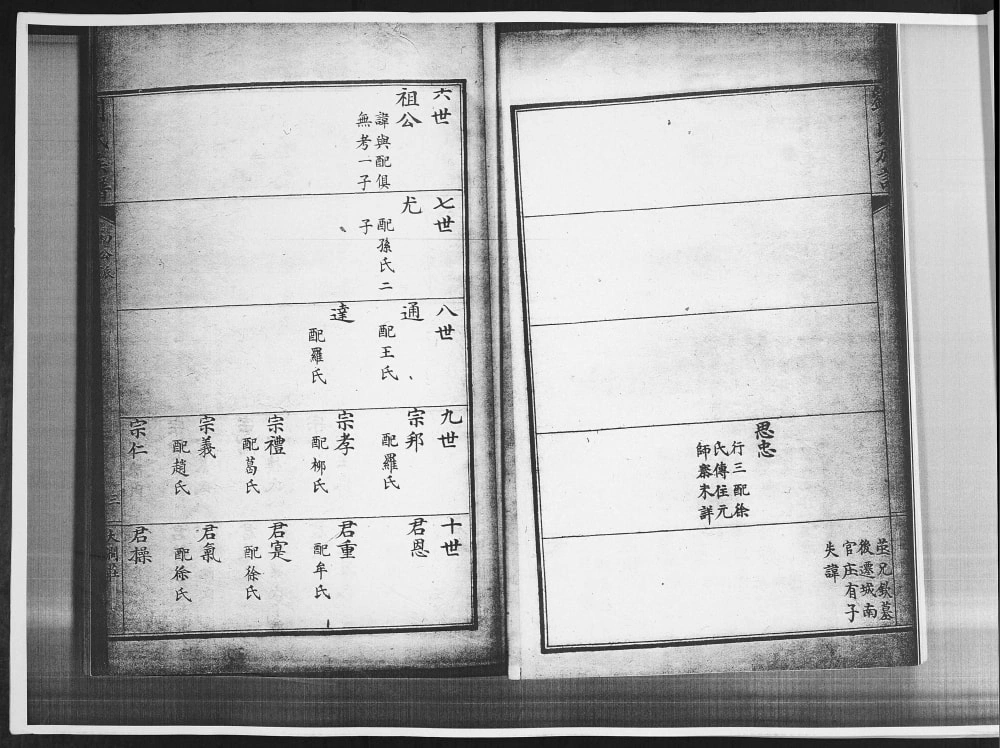 思忠
行三配徐
氏傳住元
師寨未詳
兄欽墓
後遷城南
官庄有子
失諱
六世
祖公
諱與配俱
無考一子
七世
尤
配孫氏二
子
八世
通
配王氏
達
配羅氏
九世
宗邦
配羅氏
宗孝
配柳氏
宗禮
配葛氏
宗義
配趙氏
宗仁
十世
君恩
君重
配牟氏
君寔
配徐氏
君氣
配徐氏
君操